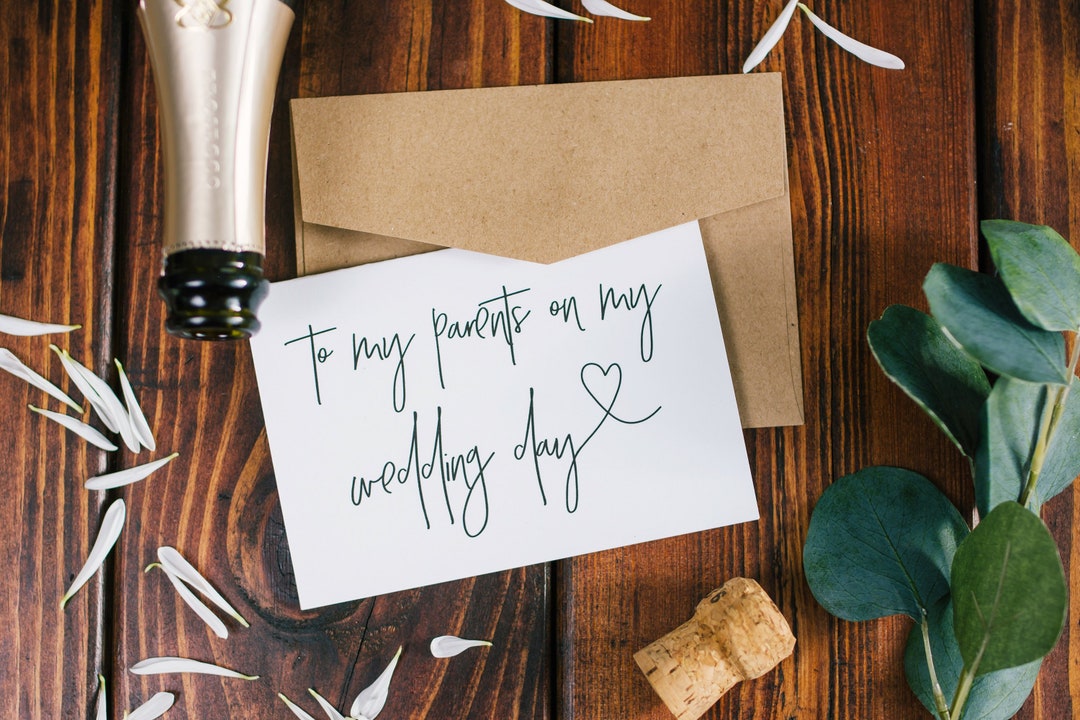 to my parents on my
wedding day